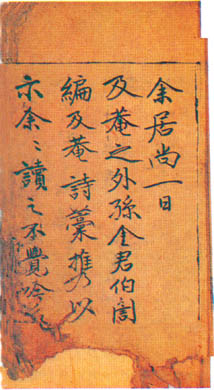 余居尚一日
及菴之外孫金君伯誾
編及菴詩藁携以
示余〻讀之不覺吟